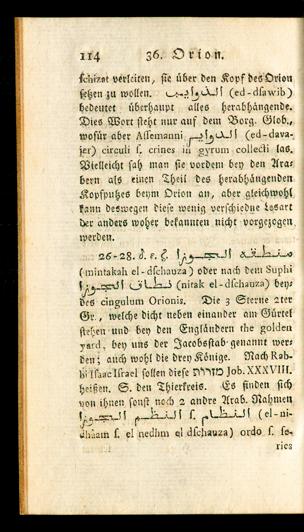 114 36. Orion.
schizat verleiten, sie über den Kopf des Orion
setzen zu wollen. الذوايب (ed-dsawib)
bedeutet überhaupt alles herabhängende.
Dies Wort steht nur auf dem Borg. Glob.,
wofür aber Assemanni الدواير (ed-dava-
jer) circuli s. crines in gyrum collecti las.
Vielleicht sah man sie vordem bey den Ara-
bern als einen Theil des herabhängenden
Kopfputzes beym Orion an, aber gleichwohl
kann deswegen diese wenig verschiedne Lesart
der anders woher bekannten nicht vorgezogen
werden.
26-28. δ. ε. ζ. منطقه الجوزا
(mintakah el-dschauza) oder nach dem Suphi
نطاق الجوزا (nitak el-dschauza) bey-
des cingulum Orionis. Die 3 Sterne 2ter
Gr., welche dicht neben einander am Gürtel
stehen und bey den Engländern the golden
yard, bey uns der Jacobsstab genannt wer-
den; auch wohl die drey Könige. Nach Rab-
bi Isaac Israel sollen diese מזרות Job. XXXVIII.
heißen. S. den Thierkreis. Es finden sich
von ihnen sonst noch 2 andre Arab. Nahmen
النظام s. النظم الجوزا (el-ni-
dhâam s. el nedhm el dschauza) ordo s. se-
ries